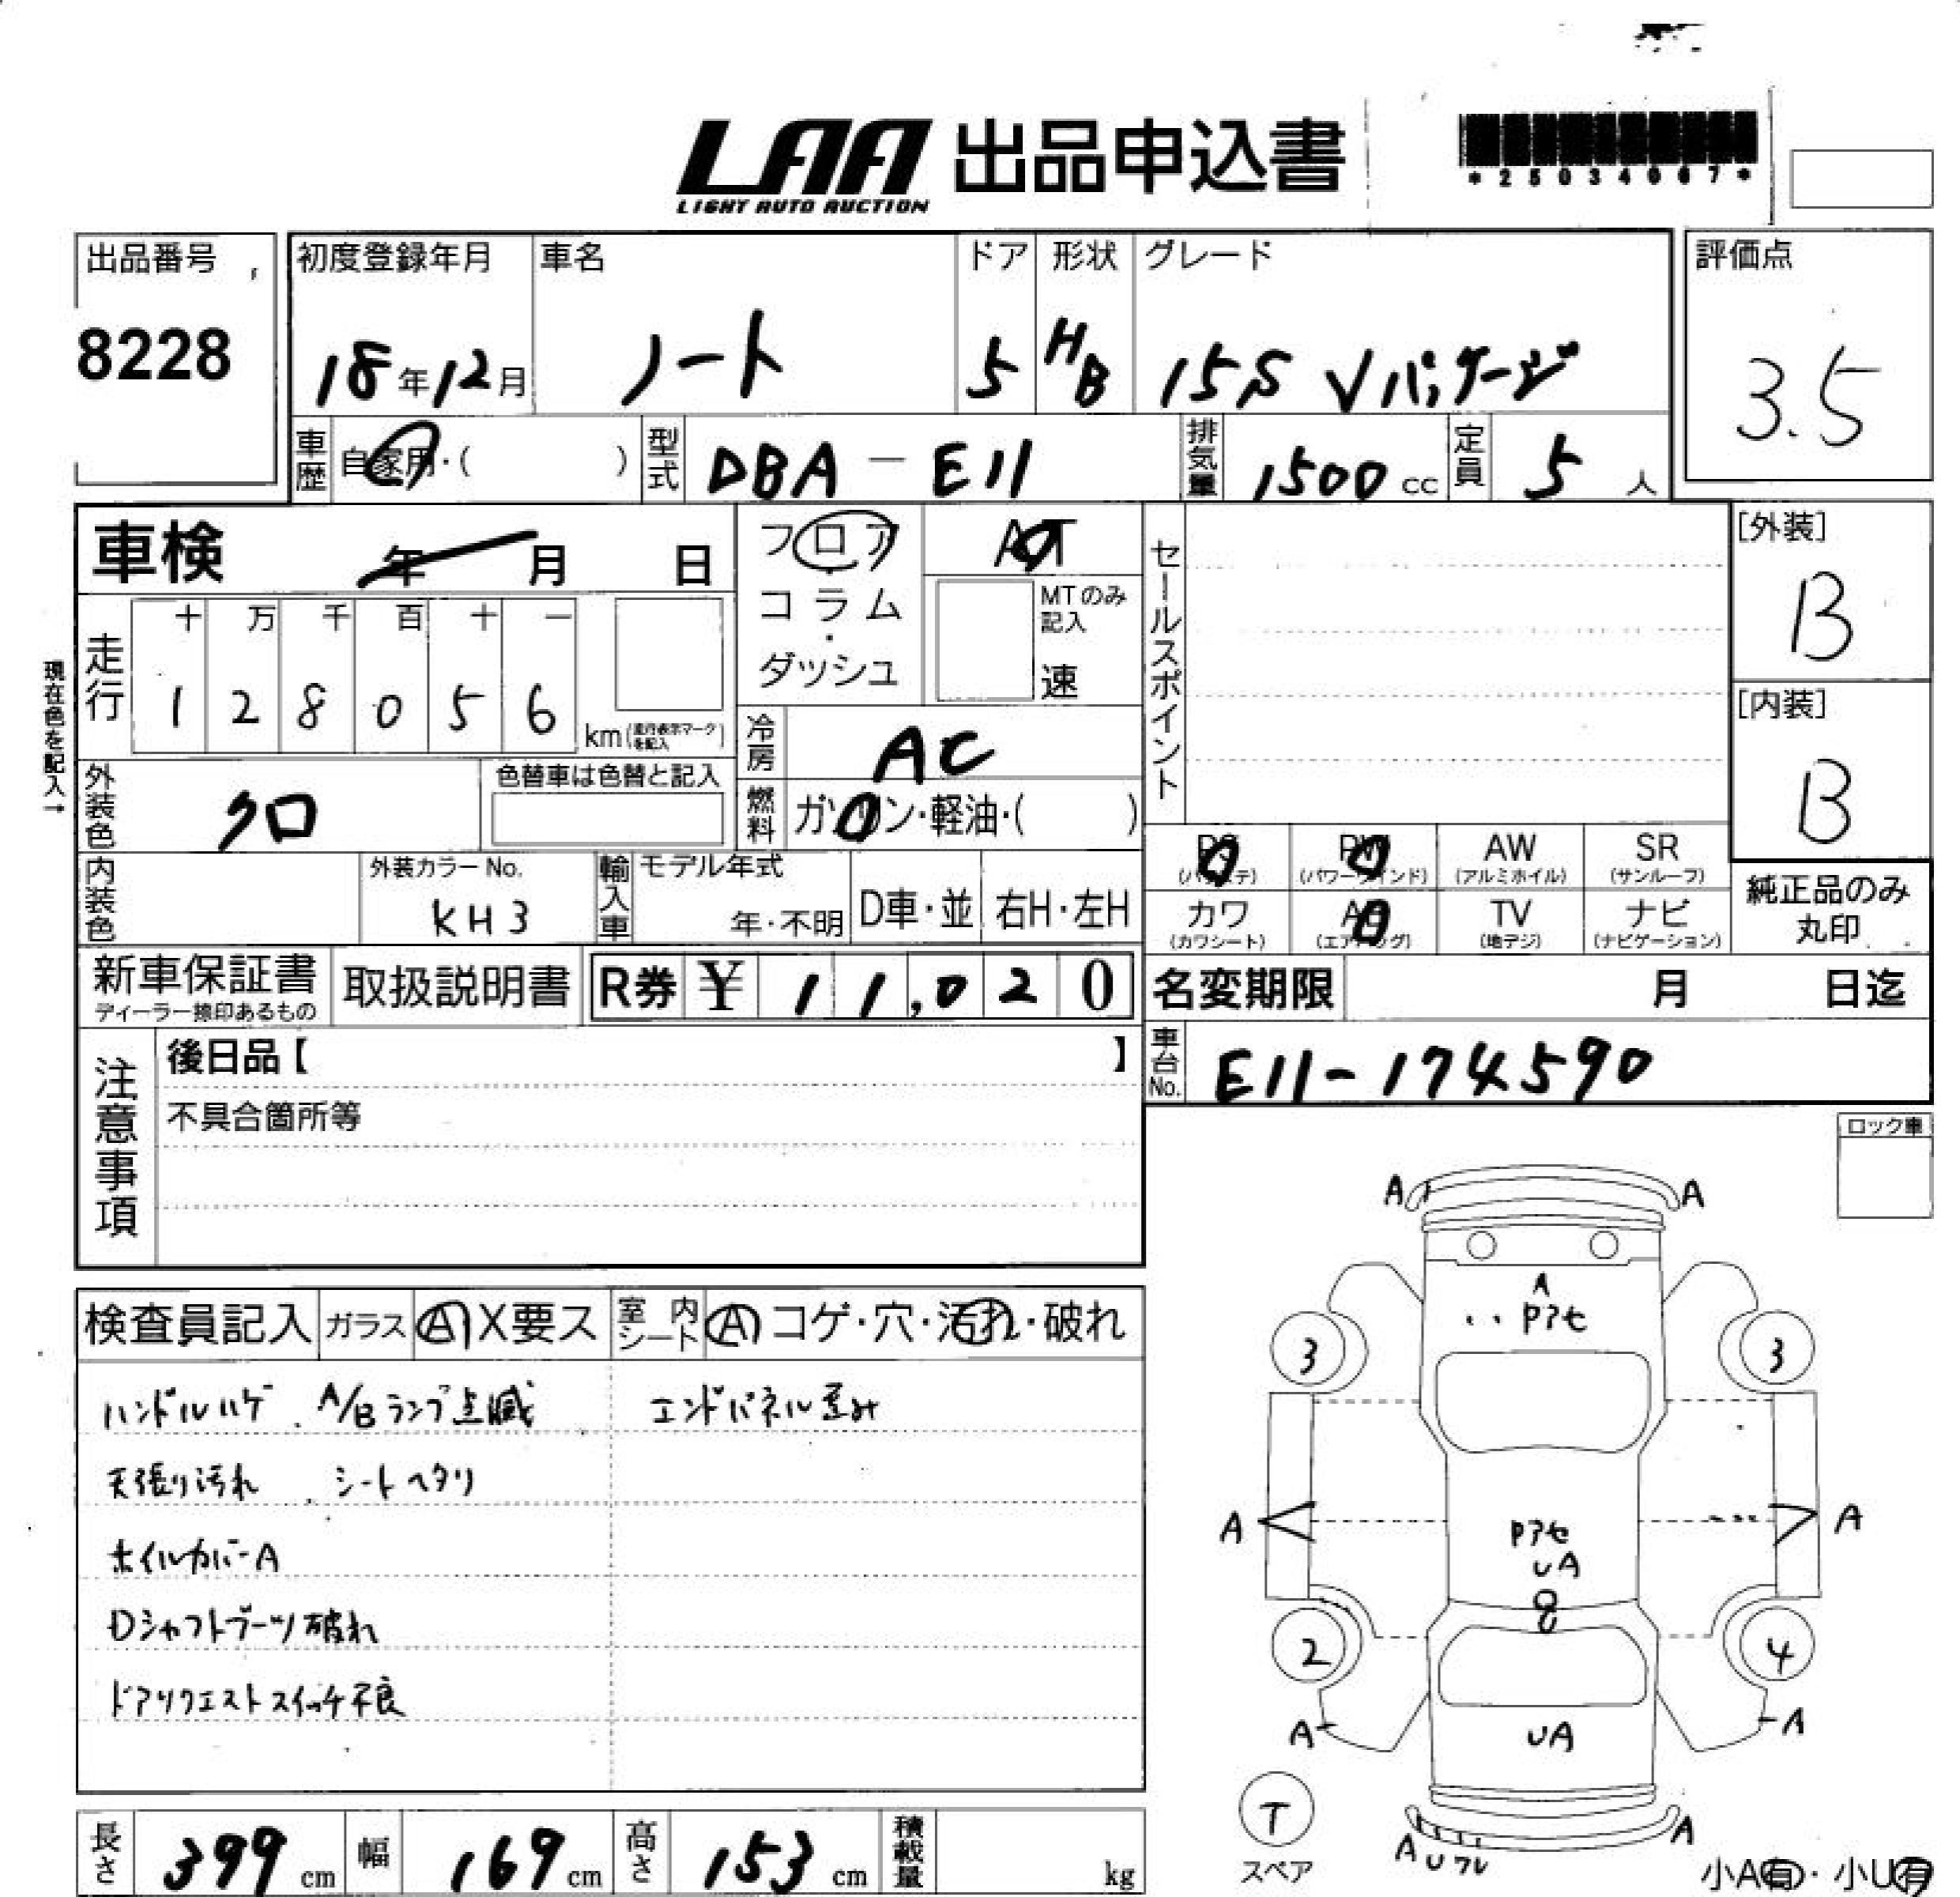 LAA 出品申込書
LIGHT AUTO AUCTION
*25034067*
出品番号
8228
初度登録年月 車名 ドア 形状 グレード
18年12月 ノート 5 HB 15S Vパッケージ
評価点
3.5
車歴 自家用・( ) 型式 DBA-E11 排気量 1500cc 定員 5人
車検 年 月 日
フロア・コラム・ダッシュ
AT
MTのみ記入
速
セールスポイント
[外装]
B
[内装]
B
現在色を記入→
走行 十 万 千 百 十 一
1 2 8 0 5 6 km(走行表示マークを記入)
冷房 AC
外装色 クロ 色替車は色替と記入
燃料 ガソリン・軽油・( )
PS PW AW SR
(パワステ) (パワーウインド) (アルミホイル) (サンルーフ)
カワ AB TV ナビ
(カワシート) (エアーバッグ) (地デジ) (ナビゲーション)
純正品のみ
丸印
内装色 外装カラーNo. KH3
輸入車 モデル年式 年・不明 D車・並 右H・左H
新車保証書 取扱説明書 R券 ¥ 11,020
ディーラー捺印あるもの
名変期限 月 日迄
車台No. E11-174590
注意事項
後日品【 】
不具合箇所等
ロック車
検査員記入 ガラス A X要ス 室内シート A コゲ・穴・汚れ・破れ
ハンドルハゲ、A/Bランプ点滅 エンドパネル歪み
天張り汚れ、シートヘタリ
ホイルカバーA
Dシャフトブーツ破れ
ドアリクエストスイッチ不良
A A
A
Pアセ
3 3
A A
Pアセ
UA
2 4
A A
UA
T
スペア
A U ワレ A
小A有・小U有
長さ 399cm 幅 169cm 高さ 153cm 積載量 kg